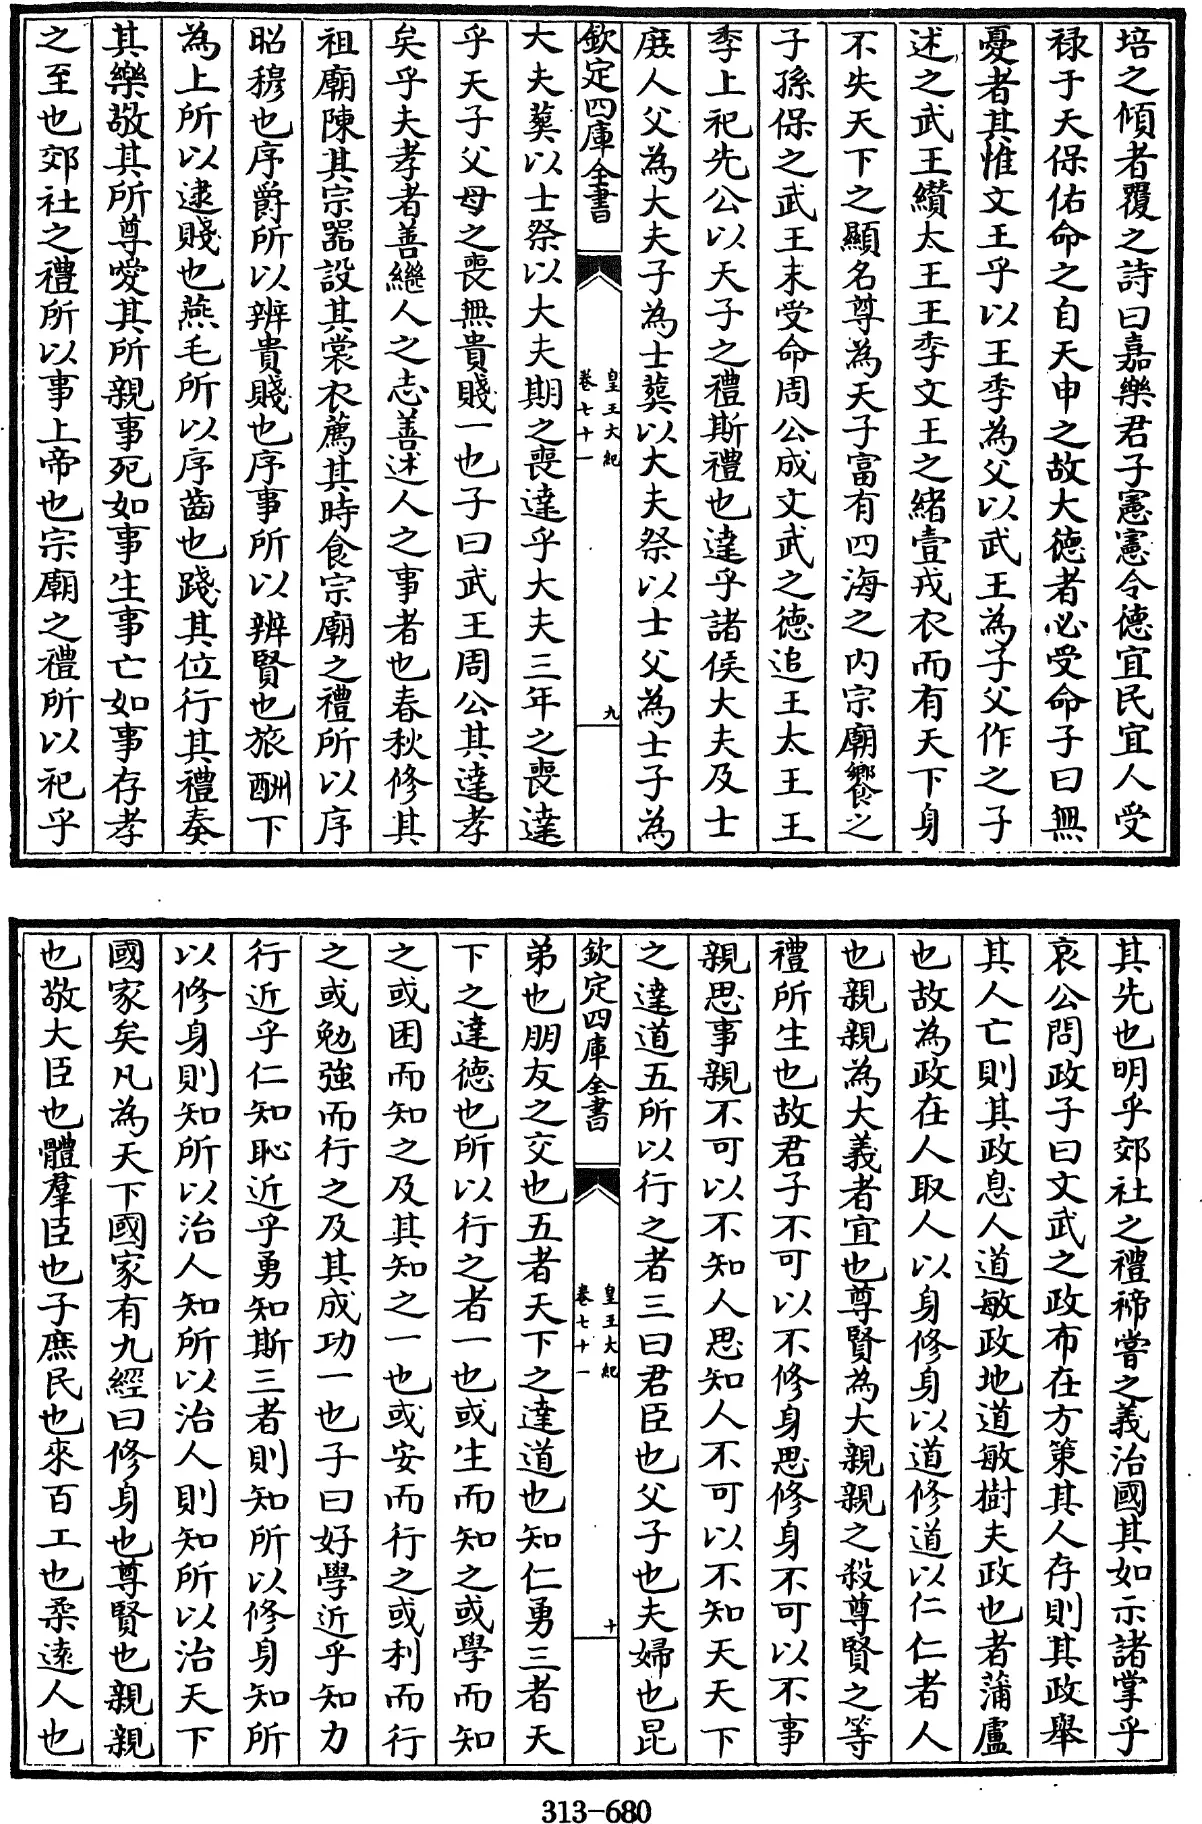 培之傾者覆之詩曰嘉樂君子憲憲令德宜民宜人受
禄于天保佑命之自天申之故大德者必受命子曰無
憂者其惟文王乎以王季為父以武王為子父作之子
述之武王纘太王王季文王之緒壹戎衣而有天下身
不失天下之顯名尊為天子富有四海之內宗廟饗之
子孫保之武王末受命周公成文武之德追王太王王
季上祀先公以天子之禮斯禮也達乎諸侯大夫及士
庶人父為大夫子為士葬以大夫祭以士父為士子為
欽定四庫全書
皇王大紀
卷七十一
九
大夫葬以士祭以大夫期之喪達乎大夫三年之喪達
乎天子父母之喪無貴賤一也子曰武王周公其達孝
矣乎夫孝者善繼人之志善述人之事者也春秋修其
祖廟陳其宗器設其裳衣薦其時食宗廟之禮所以序
昭穆也序爵所以辨貴賤也序事所以辨賢也旅酬下
為上所以逮賤也燕毛所以序齒也踐其位行其禮奏
其樂敬其所尊愛其所親事死如事生事亡如事存孝
之至也郊社之禮所以事上帝也宗廟之禮所以祀乎
其先也明乎郊社之禮禘嘗之義治國其如示諸掌乎
哀公問政子曰文武之政布在方策其人存則其政舉
其人亡則其政息人道敏政地道敏樹夫政也者蒲盧
也故為政在人取人以身修身以道修道以仁仁者人
也親親為大義者宜也尊賢為大親親之殺尊賢之等
禮所生也故君子不可以不修身思修身不可以不事
親思事親不可以不知人思知人不可以不知天天下
之達道五所以行之者三曰君臣也父子也夫婦也昆
欽定四庫全書
皇王大紀
卷七十一
十
弟也朋友之交也五者天下之達道也知仁勇三者天
下之達德也所以行之者一也或生而知之或學而知
之或困而知之及其知之一也或安而行之或利而行
之或勉強而行之及其成功一也子曰好學近乎知力
行近乎仁知恥近乎勇知斯三者則知所以修身知所
以修身則知所以治人知所以治人則知所以治天下
國家矣凡為天下國家有九經曰修身也尊賢也親親
也敬大臣也體羣臣也子庶民也來百工也柔遠人也
313-680